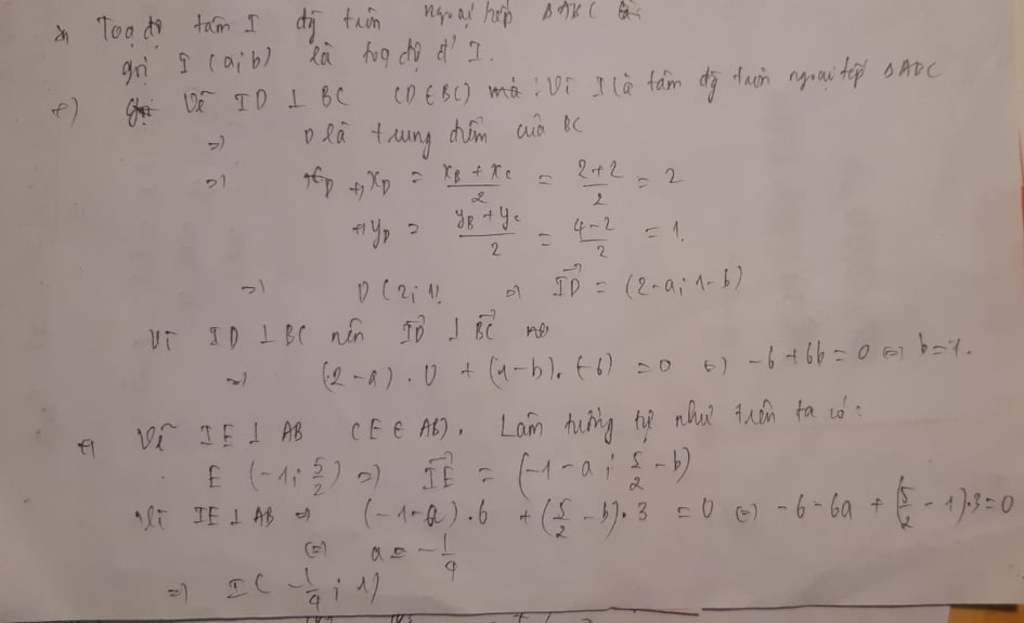 Toạ độ tâm I đg tròn ngoại tiếp ΔABC
gọi I (a; b) là toạ độ đ' I.
+) Vẽ ID ⊥ BC (D ∈ BC) : Vì I là tâm đg tròn ngoại tiếp ΔABC
=> D là trung điểm của BC
=> +, x_D = (x_B + x_C)/2 = (2+2)/2 = 2
+, y_D = (y_B + y_C)/2 = (4-2)/2 = 1.
=> D (2; 1) => ID→ = (2-a; 1-b)
Vì ID ⊥ BC nên ID→ ⊥ BC→
=> (2-a).0 + (1-b).(-6) = 0 <=> -6+6b = 0 <=> b=1.
+) Vẽ IE ⊥ AB (E ∈ AB). Làm tương tự như trên ta có:
E (-1; 5/2) => IE→ = (-1-a; 5/2 - b)
Vì IE ⊥ AB => (-1-a).6 + (5/2 - b).3 = 0 <=> -6-6a + (5/2 - 1).3=0
<=> a = -1/4
=> I (-1/4; 1)